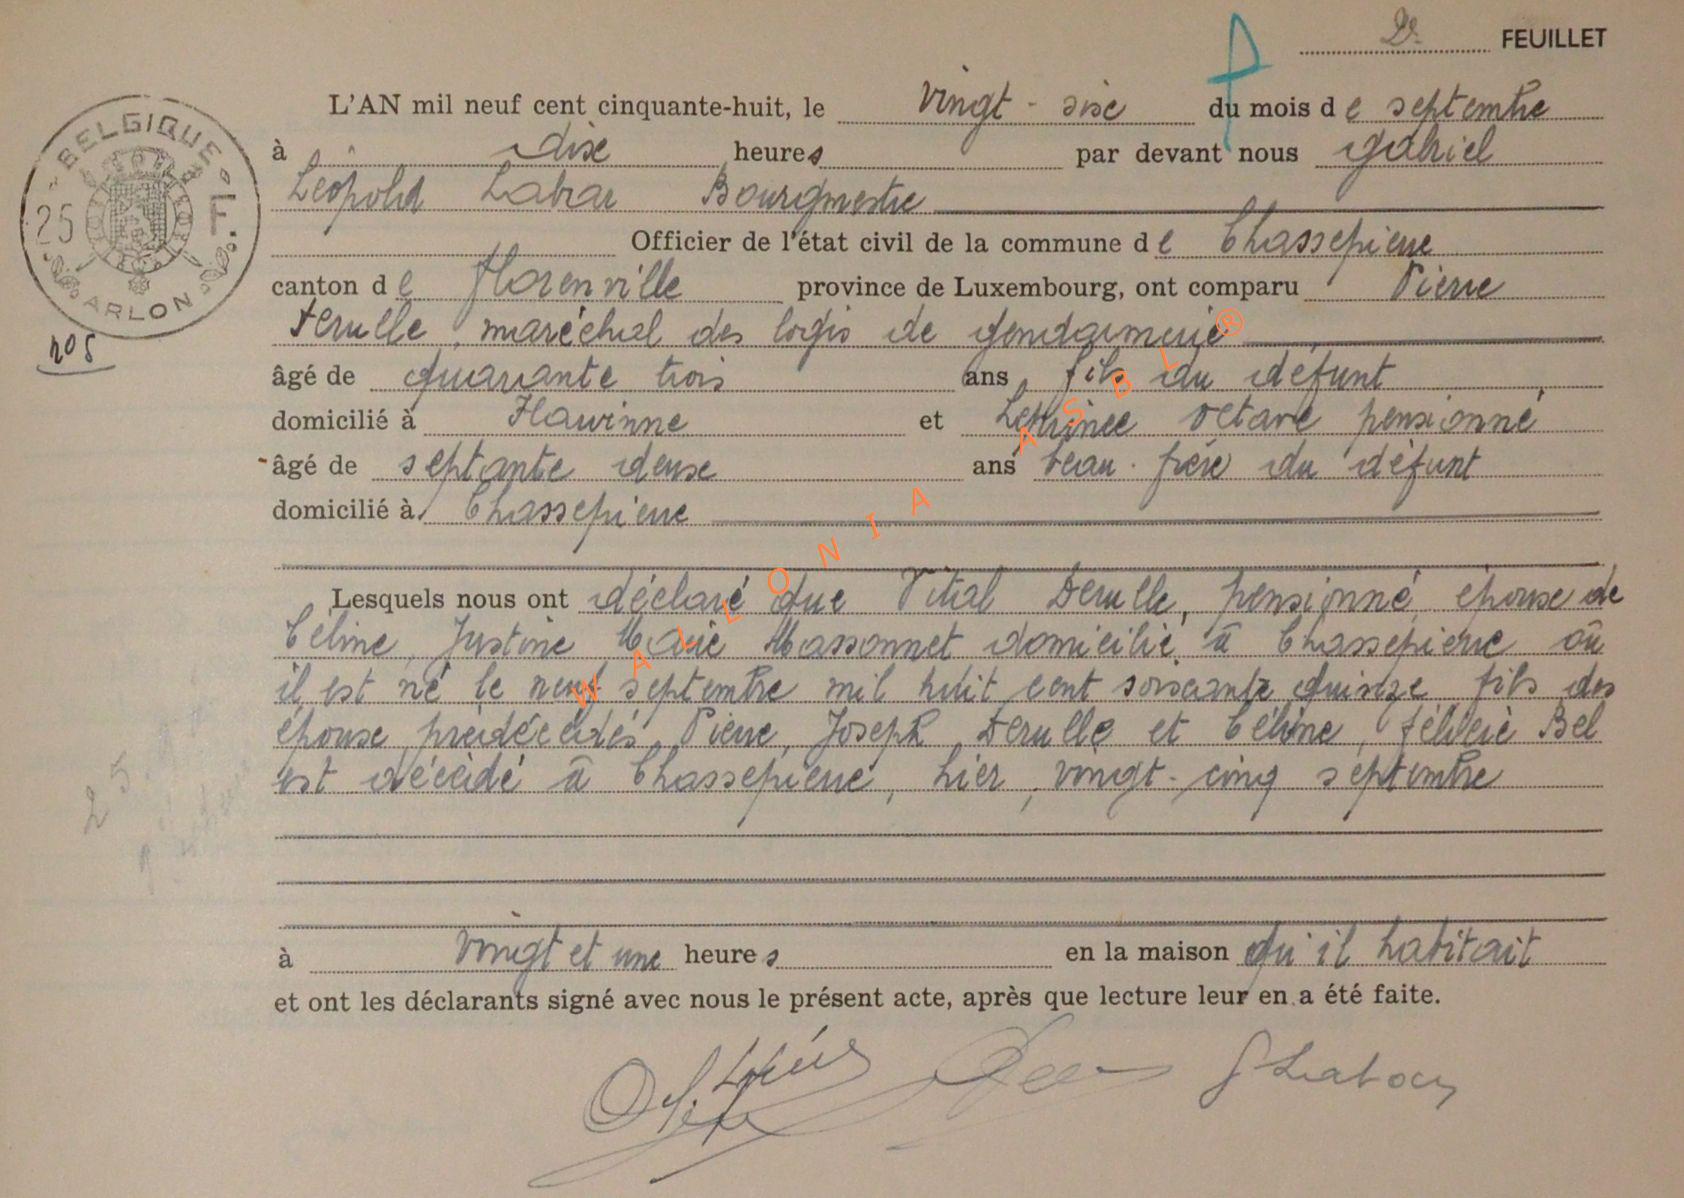 2e FEUILLET
L'AN mil neuf cent cinquante-huit, le vingt-six du mois de septembre
à dix heures par devant nous Gabriel
Léopold Labar Bourgmestre
Officier de l'état civil de la commune de Chassepierre
canton de Florenville province de Luxembourg, ont comparu Pierre
Derulle, maréchal des logis de gendarmerie
âgé de quarante trois ans fils du défunt
domicilié à Flawinne et Octave pensionné
âgé de septante deux ans beau-frère du défunt
domicilié à Chassepierre
Lesquels nous ont déclaré que Vital Derulle, pensionné, époux de
Céline, Justine Marie Massonnet domicilié à Chassepierre où
il est né le neuf septembre mil huit cent soixante quinze fils des
époux prédécédés Pierre, Joseph Derulle et Céline, Félicie Bel
est décédé à Chassepierre, hier, vingt-cinq septembre
à vingt et une heures en la maison qu'il habitait
et ont les déclarants signé avec nous le présent acte, après que lecture leur en a été faite.
BELGIQUE
25 F.
ARLON
n° 5
WALLONIA ASBL®